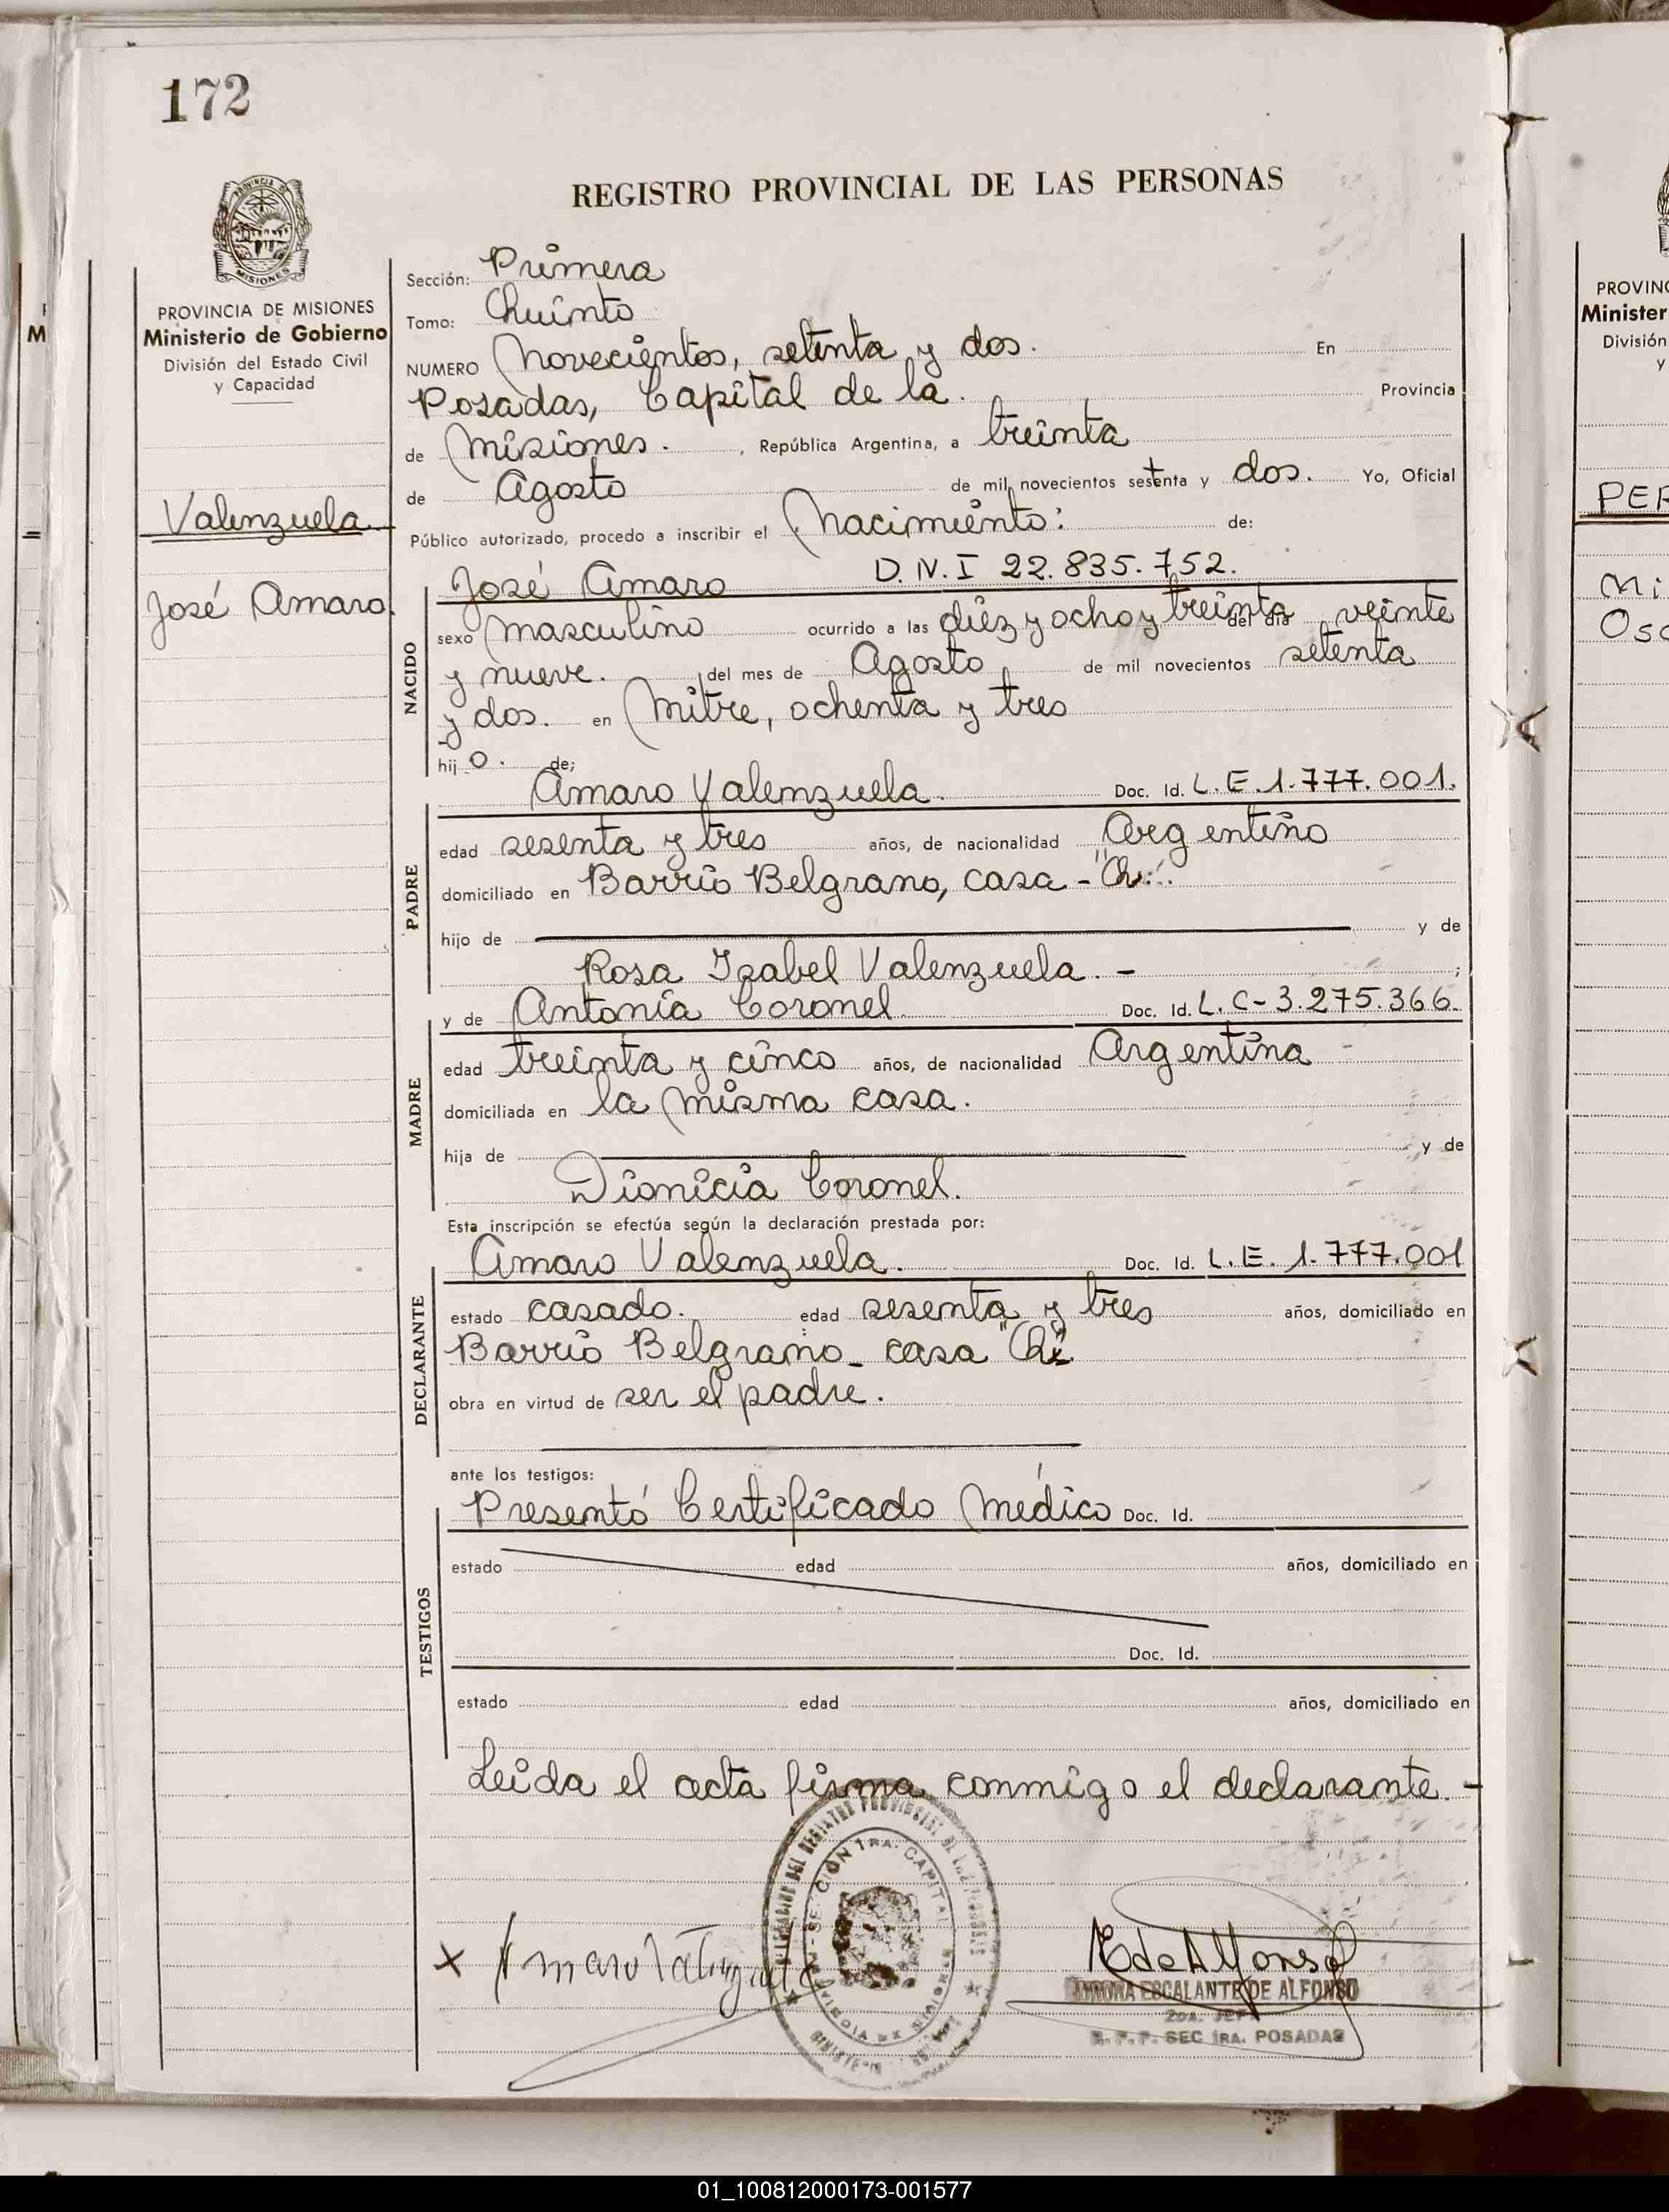 172
REGISTRO PROVINCIAL DE LAS PERSONAS
PROVINCIA DE
MISIONES
PROVINCIA DE MISIONES
Ministerio de Gobierno
División del Estado Civil
y Capacidad
Valenzuela
José Amaro.
Sección: Primera
Tomo: Quinto
NUMERO Novecientos, setenta y dos. En
Posadas, Capital de la. Provincia
de Misiones. , República Argentina, a treinta
de Agosto de mil novecientos setenta y dos. Yo, Oficial
Público autorizado, procedo a inscribir el Nacimiento: de:
José Amaro D.N.I 22.835.752.
NACIDO
sexo masculino ocurrido a las diez y ocho y treinta del día veinte
y nueve. del mes de Agosto de mil novecientos setenta
y dos. en Mitre, ochenta y tres
hijo. de;
Amaro Valenzuela. Doc. Id. L.E.1.777.001.
PADRE
edad sesenta y tres años, de nacionalidad Argentino
domiciliado en Barrio Belgrano, casa -
hijo de y de
Rosa Isabel Valenzuela. - ;
y de Antonia Coronel Doc. Id. L.C-3.275.366.
MADRE
edad treinta y cinco años, de nacionalidad Argentina
domiciliada en la misma casa.
hija de y de
Dionicia Coronel.
Esta inscripción se efectúa según la declaración prestada por:
Amaro Valenzuela. Doc. Id. L.E. 1.777.001
DECLARANTE
estado casado. edad sesenta y tres años, domiciliado en
Barrio Belgrano - casa
obra en virtud de ser el padre.
ante los testigos:
Presentó Certificado Médico Doc. Id.
TESTIGOS
estado edad años, domiciliado en
Doc. Id.
estado edad años, domiciliado en
Leida el acta firma conmigo el declarante. -
x Amaro Valenzuela
SECCION 1RA. CAPITAL
PROVINCIA DE MISIONES
R de Alfonso
AURORA ESCALANTE DE ALFONSO
2DA. JEFE
R. P. P. SEC 1RA. POSADAS
PROVINC
Minister
División
y
PER
Mi
Osc
M
01_100812000173-001577